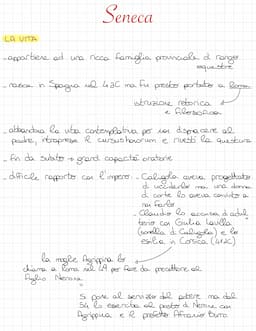 Seneca
LA VITA
- appartiene ad una ricca famiglia provinciale di rango
equestre
- nasce in Spagna nel 4 aC ma fu presto portato a Roma
istruzione retorica
e filosofica
- abbandona la vita contemplativa per non dispiacere al
padre, intraprese il cursus honorum e rivestì la questura
- fin da subito → grandi capacità oratorie
- difficile rapporto con l'impero: - Caligola aveva progettato
di ucciderlo ma una donna
di corte lo aveva convinto a
non farlo
- Claudio lo accusa di adul
terio con Giulia Livilla
(sorella di Caligola) e lo
esilia in Corsica (41 dC)
la moglie Agrippina lo
chiama a Roma nel 49 per fare da precettore al
figlio Nerone
si pone al servizio del potere ma dal
54 lo esercita al posto di Nerone con
Agrippina e il prefetto Afranio Burro